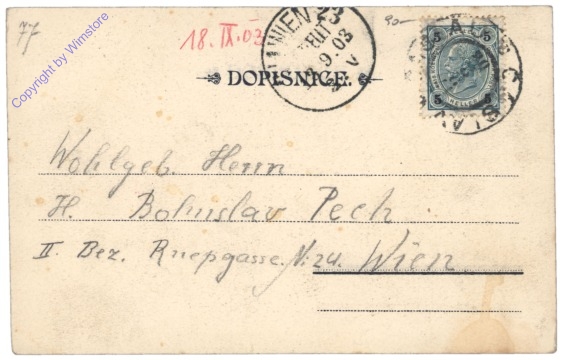 77
18. IX. 03
90-
WIEN
9 03
V
5 5
5 HELLER 5
ČÁSLAV
DOPISNICE.
Wohlgeb. Herrn
H. Bohuslav Pech
II. Bez. Ruepgasse. N: 24. Wien
Copyright by Wimstore